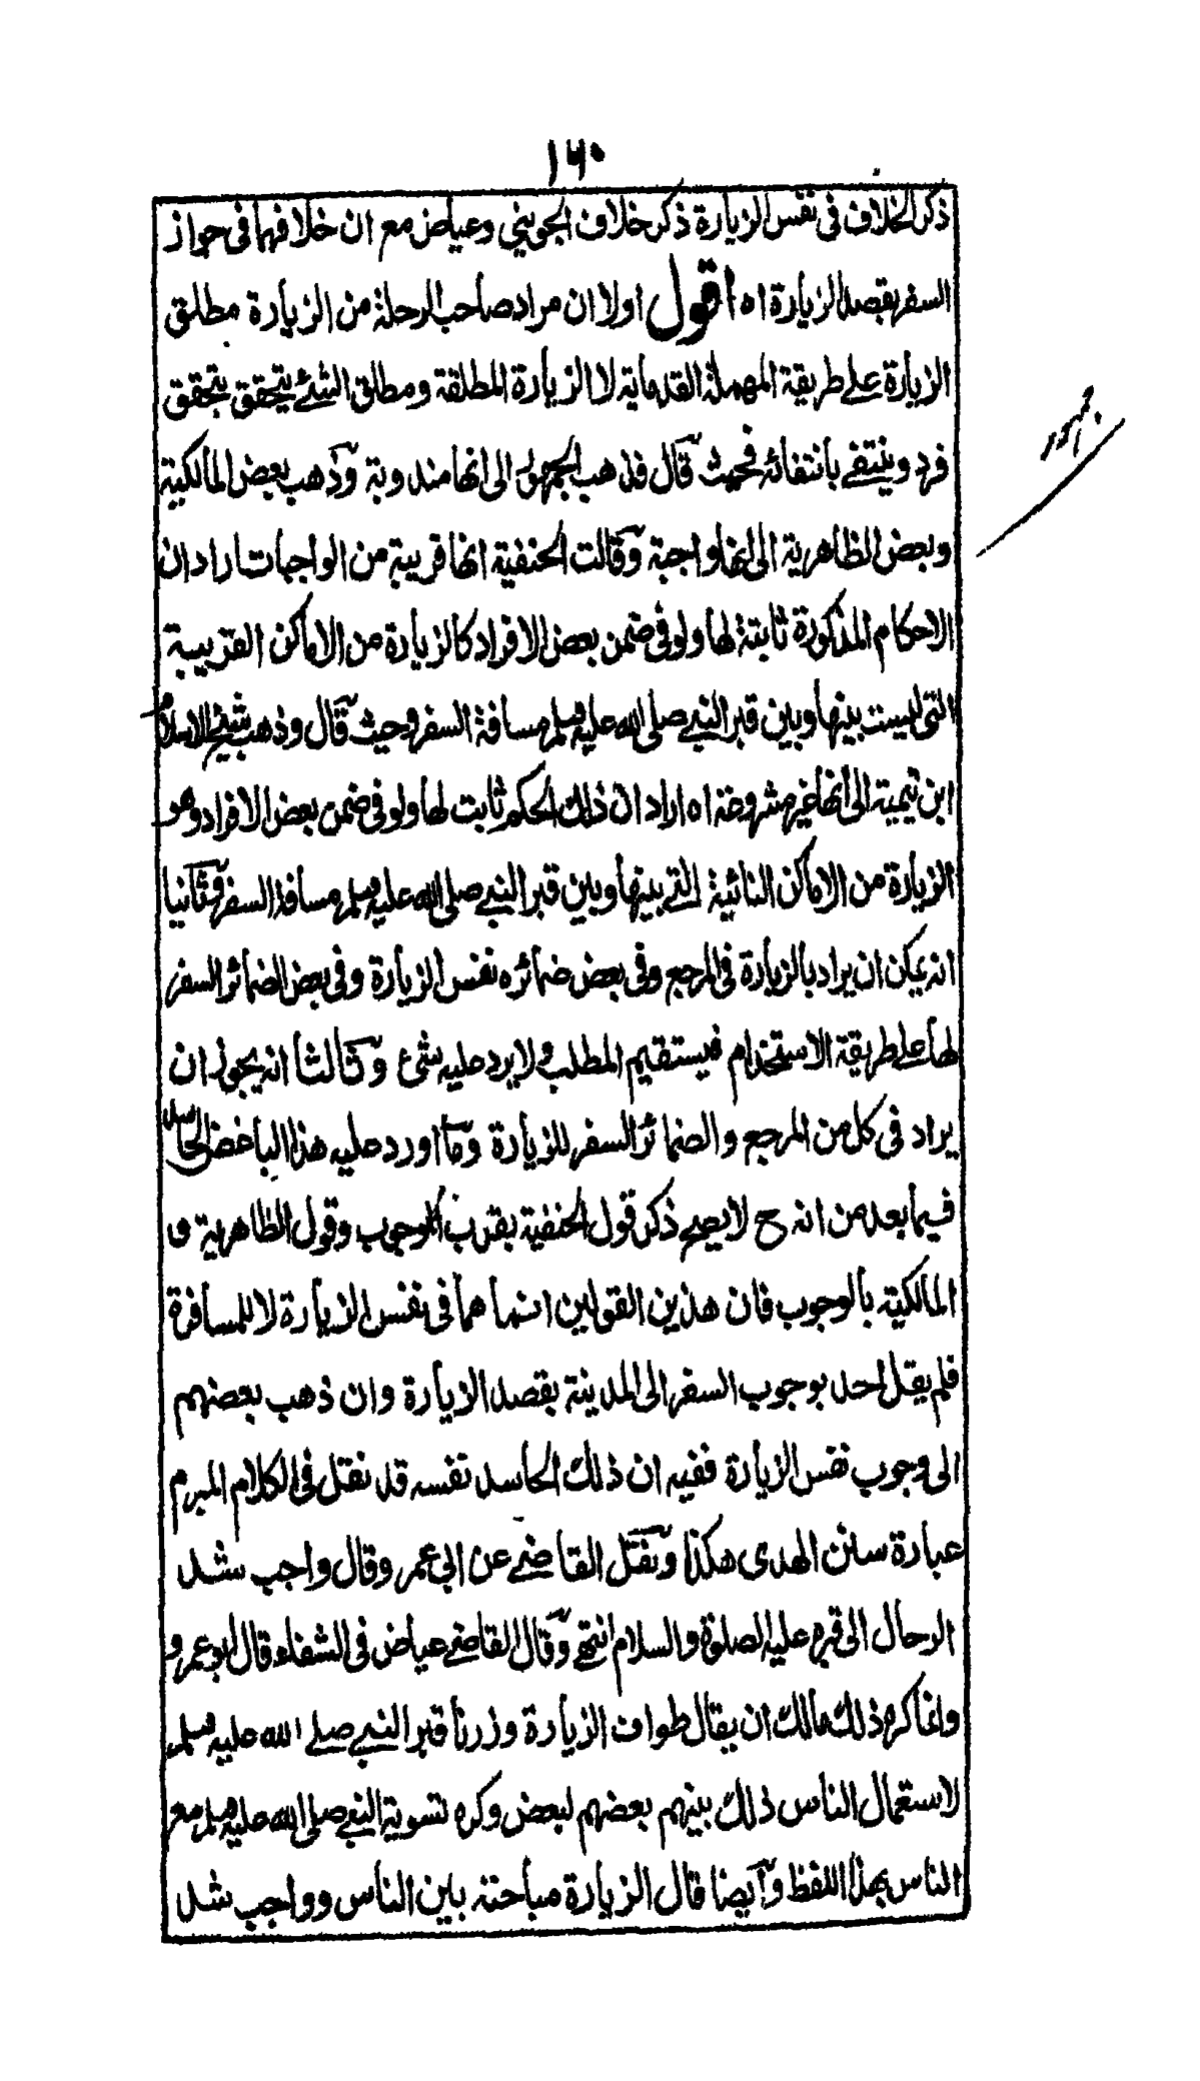 ١٦٠
ذكر الخلاف فى نفس الزيارة ذكر خلاف الجوينى وعياض مع ان خلافهما فى جواز
السفر بقصد الزيارة اه اقول اولا ان مراد صاحب الرحلة من الزيارة مطلق
الزيارة على طريقة المهملة القدمائية لا الزيارة المطلقة ومطلق الشئ يتحقق بتحقق
فرد وينتفى بانتفائه فحيث قال فذهب الجمهور الى انها مندوبة وذهب بعض المالكية
وبعض الظاهرية الى انها واجبة وقالت الحنفية انها قريبة من الواجبات اراد ان
الاحكام المذكورة ثابتة لها ولو فى ضمن بعض الافراد كالزيارة من الاماكن القريبة
التى ليست بينها وبين قبر النبى صلى الله عليه وسلم مسافة السفر وحيث قال وذهب شيخ الاسلام
ابن تيمية الى انها غير مشروعة اه اراد ان ذلك الحكم ثابت لها ولو فى ضمن بعض الافراد وهو
الزيارة من الاماكن النائية التى بينها وبين قبر النبى صلى الله عليه وسلم مسافة السفر وثانيا
انه يمكن ان يراد بالزيارة فى المرجع وفى بعض ضمائره نفس الزيارة وفى بعض الضمائر السفر
لها على طريقة الاستخدام فيستقيم المطلب ولا يرد عليه شئ وثالثا انه يجوز ان
يراد فى كل من المرجع والضمائر السفر للزيارة وما اورد عليه هذا الباغض الحاسد
فيما بعد من انه ح لا يصح ذكر قول الحنفية بقرب الوجوب وقول الظاهرية و
المالكية بالوجوب فان هذين القولين انما هما فى نفس الزيارة لا للمسافرة
فلم يقل احد بوجوب السفر الى المدينة بقصد الزيارة وان ذهب بعضهم
الى وجوب نفس الزيارة ففيه ان ذلك الحاسد نفسه قد نقل فى الكلام المبرم
عبارة سنن الهدى هكذا ونقل القاضى عن ابى عمر وقال واجب شد
الرحال الى قبره عليه الصلوة والسلام انتهى وقال القاضى عياض فى الشفاء قال ابو عمرو
وانما كره ذلك مالك ان يقال طواف الزيارة وزرنا قبر النبى صلى الله عليه وسلم
لاستعمال الناس ذلك بينهم بعضهم لبعض وكره تسوية النبى صلى الله عليه وسلم مع
الناس بهذا اللفظ وايضا قال الزيارة مباحة بين الناس وواجب شد